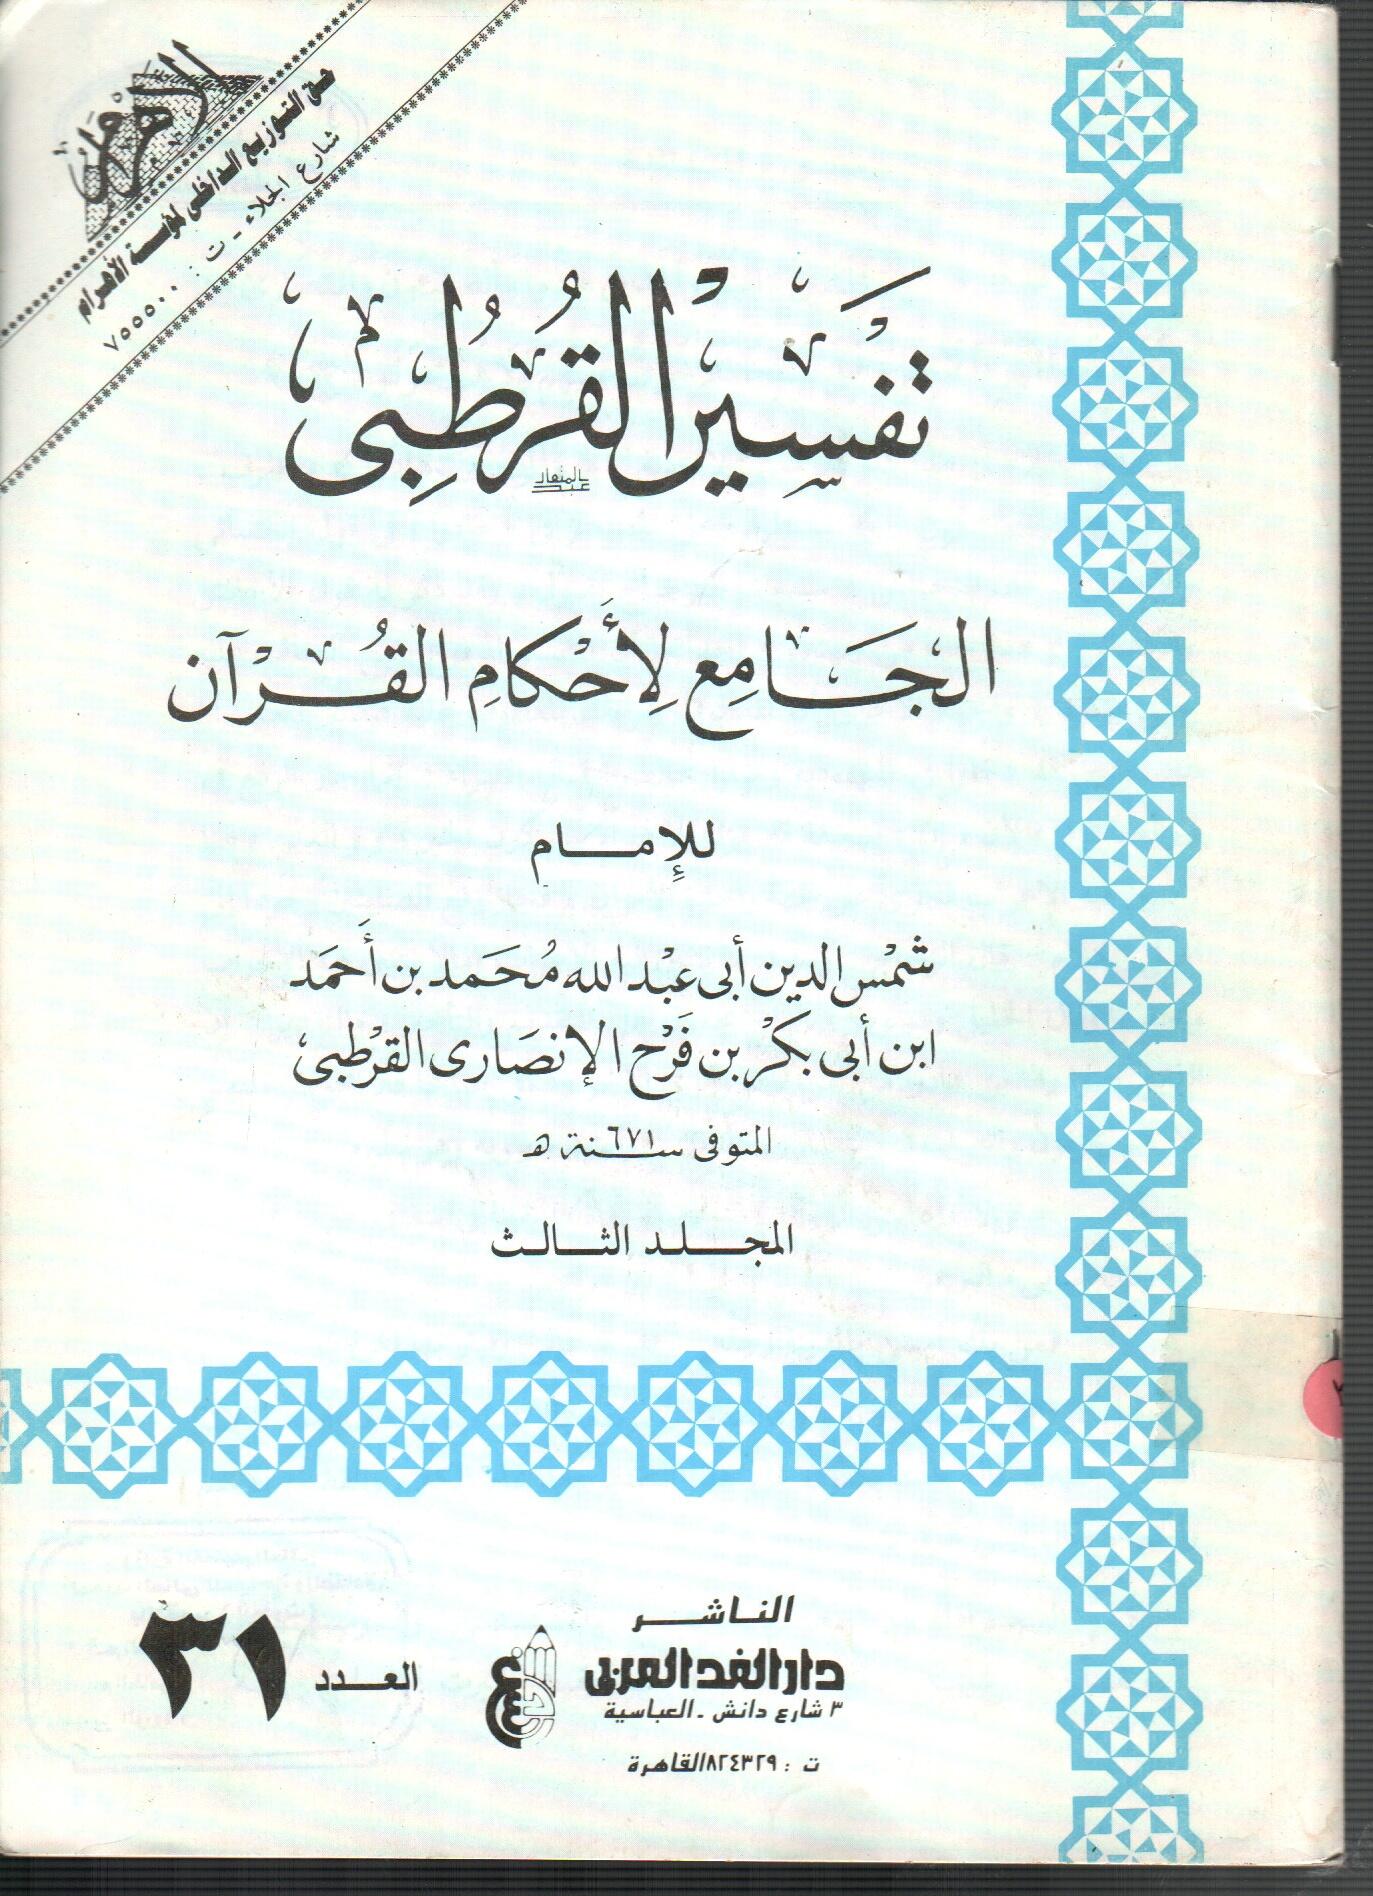 الأهرام
حق التوزيع الداخلى لمؤسسة الأهرام
شارع الجلاء - ت : ٧٥٥٥٠٠
تفسير القرطبى
الجامع لأحكام القرآن
للإمام
شمس الدين أبى عبد الله محمد بن أحمد
ابن أبى بكر بن فرح الإنصارى القرطبى
المتوفى سنة ٦٧١ ه
المجلد الثالث
الناشر
دار الغد العربى
٣ شارع دانش - العباسية
ت : ٨٢٤٣٢٩ القاهرة
العدد ٣١